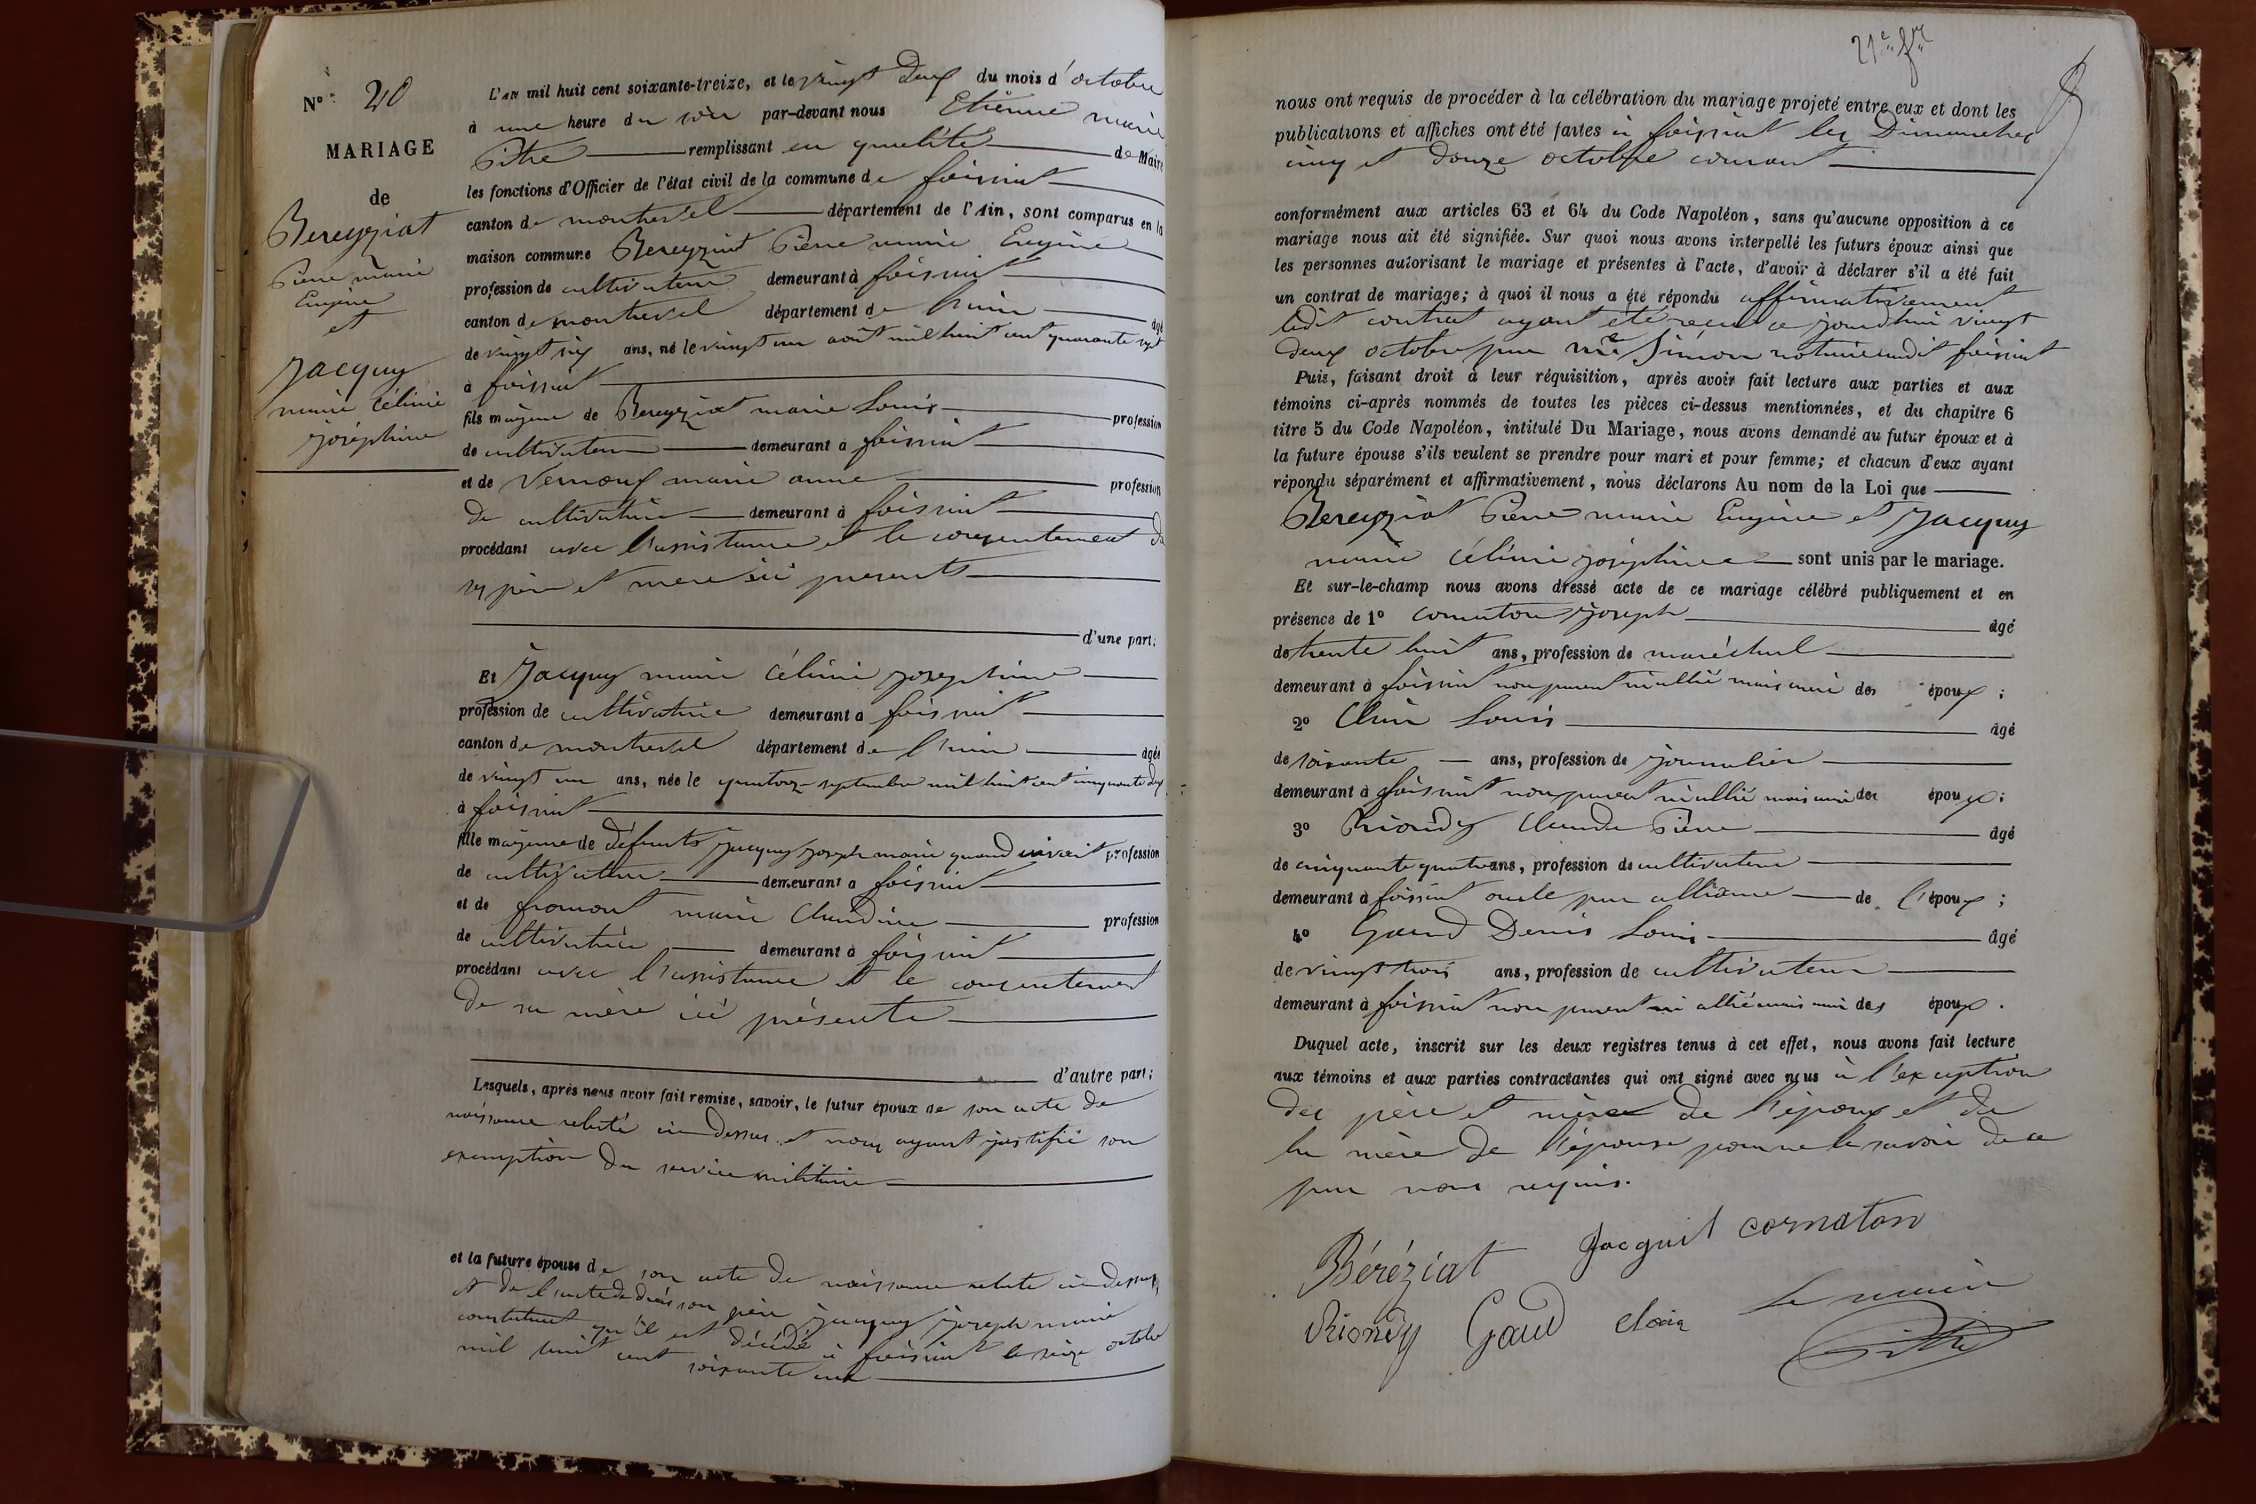 N° 20
MARIAGE
de
Bereyziat
Pierre marie
Eugène
et
Jacquy
marie Célinie
joséphine
L'an mil huit cent soixante-treize, et le vingt deux du mois d'octobre
à une heure du soir par-devant nous Etienne marie
Pitre remplissant en qualité de Maire
les fonctions d'Officier de l'état civil de la commune de foissiat
canton de montrevel département de l'Ain, sont comparus en la
maison commune Bereyziat Pierre marie Eugène
profession de cultivateur demeurant à foissiat
canton de montrevel département de l'ain âgé
de vingt six ans, né le vingt un août mil huit cent quarante sept
à foissiat
fils majeur de Bereyziat marie Louis profession
de cultivateur demeurant à foissiat
et de Vernoux marie anne profession
de cultivatrice demeurant à foissiat
procédant avec l'assistance et le consentement de
ses père et mère ici présents
d'une part;
Et Jacquy marie Célinie joséphine
profession de cultivatrice demeurant à foissiat
canton de montrevel département de l'ain âgée
de vingt un ans, née le quatorze septembre mil huit cent cinquante deux
à foissiat
fille majeure de défunts jacquy joseph marie quand vivait profession
de cultivateur demeurant à foissiat
et de fromont marie Claudine profession
de cultivatrice demeurant à foissiat
procédant avec l'assistance et le consentement
de sa mère ici présente
d'autre part;
Lesquels, après nous avoir fait remise, savoir, le futur époux de son acte de
naissance relaté ci-dessus et nous ayant justifié son
exemption du service militaire
et la future épouse de son acte de naissance relaté ci-dessus
et de l'acte de décès son père Jacquy Joseph marie
constatant qu'il est décédé à foissiat le seize octobre
mil huit cent soixante un
21e fr
nous ont requis de procéder à la célébration du mariage projeté entre eux et dont les
publications et affiches ont été faites à foissiat les Dimanches
cinq et douze octobre courant
conformément aux articles 63 et 64 du Code Napoléon, sans qu'aucune opposition à ce
mariage nous ait été signifiée. Sur quoi nous avons interpellé les futurs époux ainsi que
les personnes autorisant le mariage et présentes à l'acte, d'avoir à déclarer s'il a été fait
un contrat de mariage; à quoi il nous a été répondu affirmativement
ledit contrat ayant été reçu ce jourd'hui vingt
deux octobre par me Simon notaire audit foissiat
Puis, faisant droit à leur réquisition, après avoir fait lecture aux parties et aux
témoins ci-après nommés de toutes les pièces ci-dessus mentionnées, et du chapitre 6
titre 5 du Code Napoléon, intitulé Du Mariage, nous avons demandé au futur époux et à
la future épouse s'ils veulent se prendre pour mari et pour femme; et chacun d'eux ayant
répondu séparément et affirmativement, nous déclarons Au nom de la Loi que
Bereyziat Pierre marie Eugène et Jacquy
marie Célinie joséphine sont unis par le mariage.
Et sur-le-champ nous avons dressé acte de ce mariage célébré publiquement et en
présence de 1° Cornaton Joseph âgé
de trente huit ans, profession de maréchal
demeurant à foissiat non parent ni allié mais ami des époux;
2° Clair Louis âgé
de soixante ans, profession de journalier
demeurant à foissiat non parent ni allié mais ami des époux;
3° Riondy Claude Pierre âgé
de cinquante quatre ans, profession de cultivateur
demeurant à foissiat oncle par alliance de l'époux;
4° Gaud Denis Louis âgé
de vingt trois ans, profession de cultivateur
demeurant à foissiat non parent ni allié mais ami des époux.
Duquel acte, inscrit sur les deux registres tenus à cet effet, nous avons fait lecture
aux témoins et aux parties contractantes qui ont signé avec nous à l'exception
des père et mère de l'époux et de
la mère de l'épouse pour ne le savoir de ce
par nous requis.
Béréziat Jacquit cornaton
Riondy Gaud Clair Le maire
Pitre